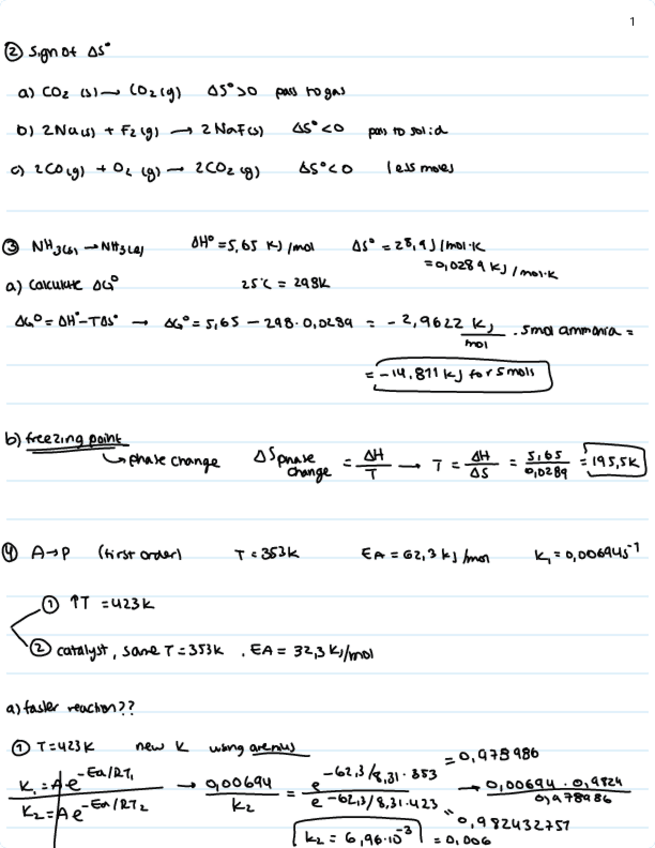 1
② sign of ΔS°
a) CO2 (s) → CO2 (g) ΔS°>0 pass to gas
b) 2Na(s) + F2 (g) → 2NaF(s) ΔS°<0 pass to solid
c) 2CO(g) + O2 (g) → 2CO2 (g) ΔS°<0 less moles
③ NH3(s) → NH3(l) ΔH°=5,65 KJ/mol ΔS°=28,9 J/mol·K
=0,0289 KJ/mol·K
a) Calculate ΔG° 25°C = 298K
ΔG°=ΔH°-TΔS° → ΔG°=5,65-298·0,0289 = -2,9622 KJ/mol · 5mol ammonia =
= -14,811 KJ for 5 mols
b) freezing point
↳ phase change ΔS phase change = ΔH/T → T = ΔH/ΔS = 5,65/0,0289 = 195,5K
④ A→P (first order) T=353K EA=62,3 KJ/mol K1=0,00694 s⁻¹
① ↑T =423K
② catalyst, same T=353K , EA= 32,3 KJ/mol
a) faster reaction??
① T=423K new K using arenius = 0,978986
K1=Ae^-Ea/RT1 / K2=Ae^-Ea/RT2 → 0,00694/K2 = e^-62,3/8,31·353 / e^-62,3/8,31·423 → 0,00694·0,9824/0,978986
= 0,982432757
K2 = 6,96·10⁻³ = 0,006